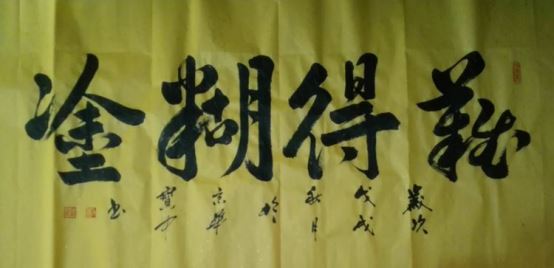 難得糊塗
歲次
戊戌
秋月
於
京華
书